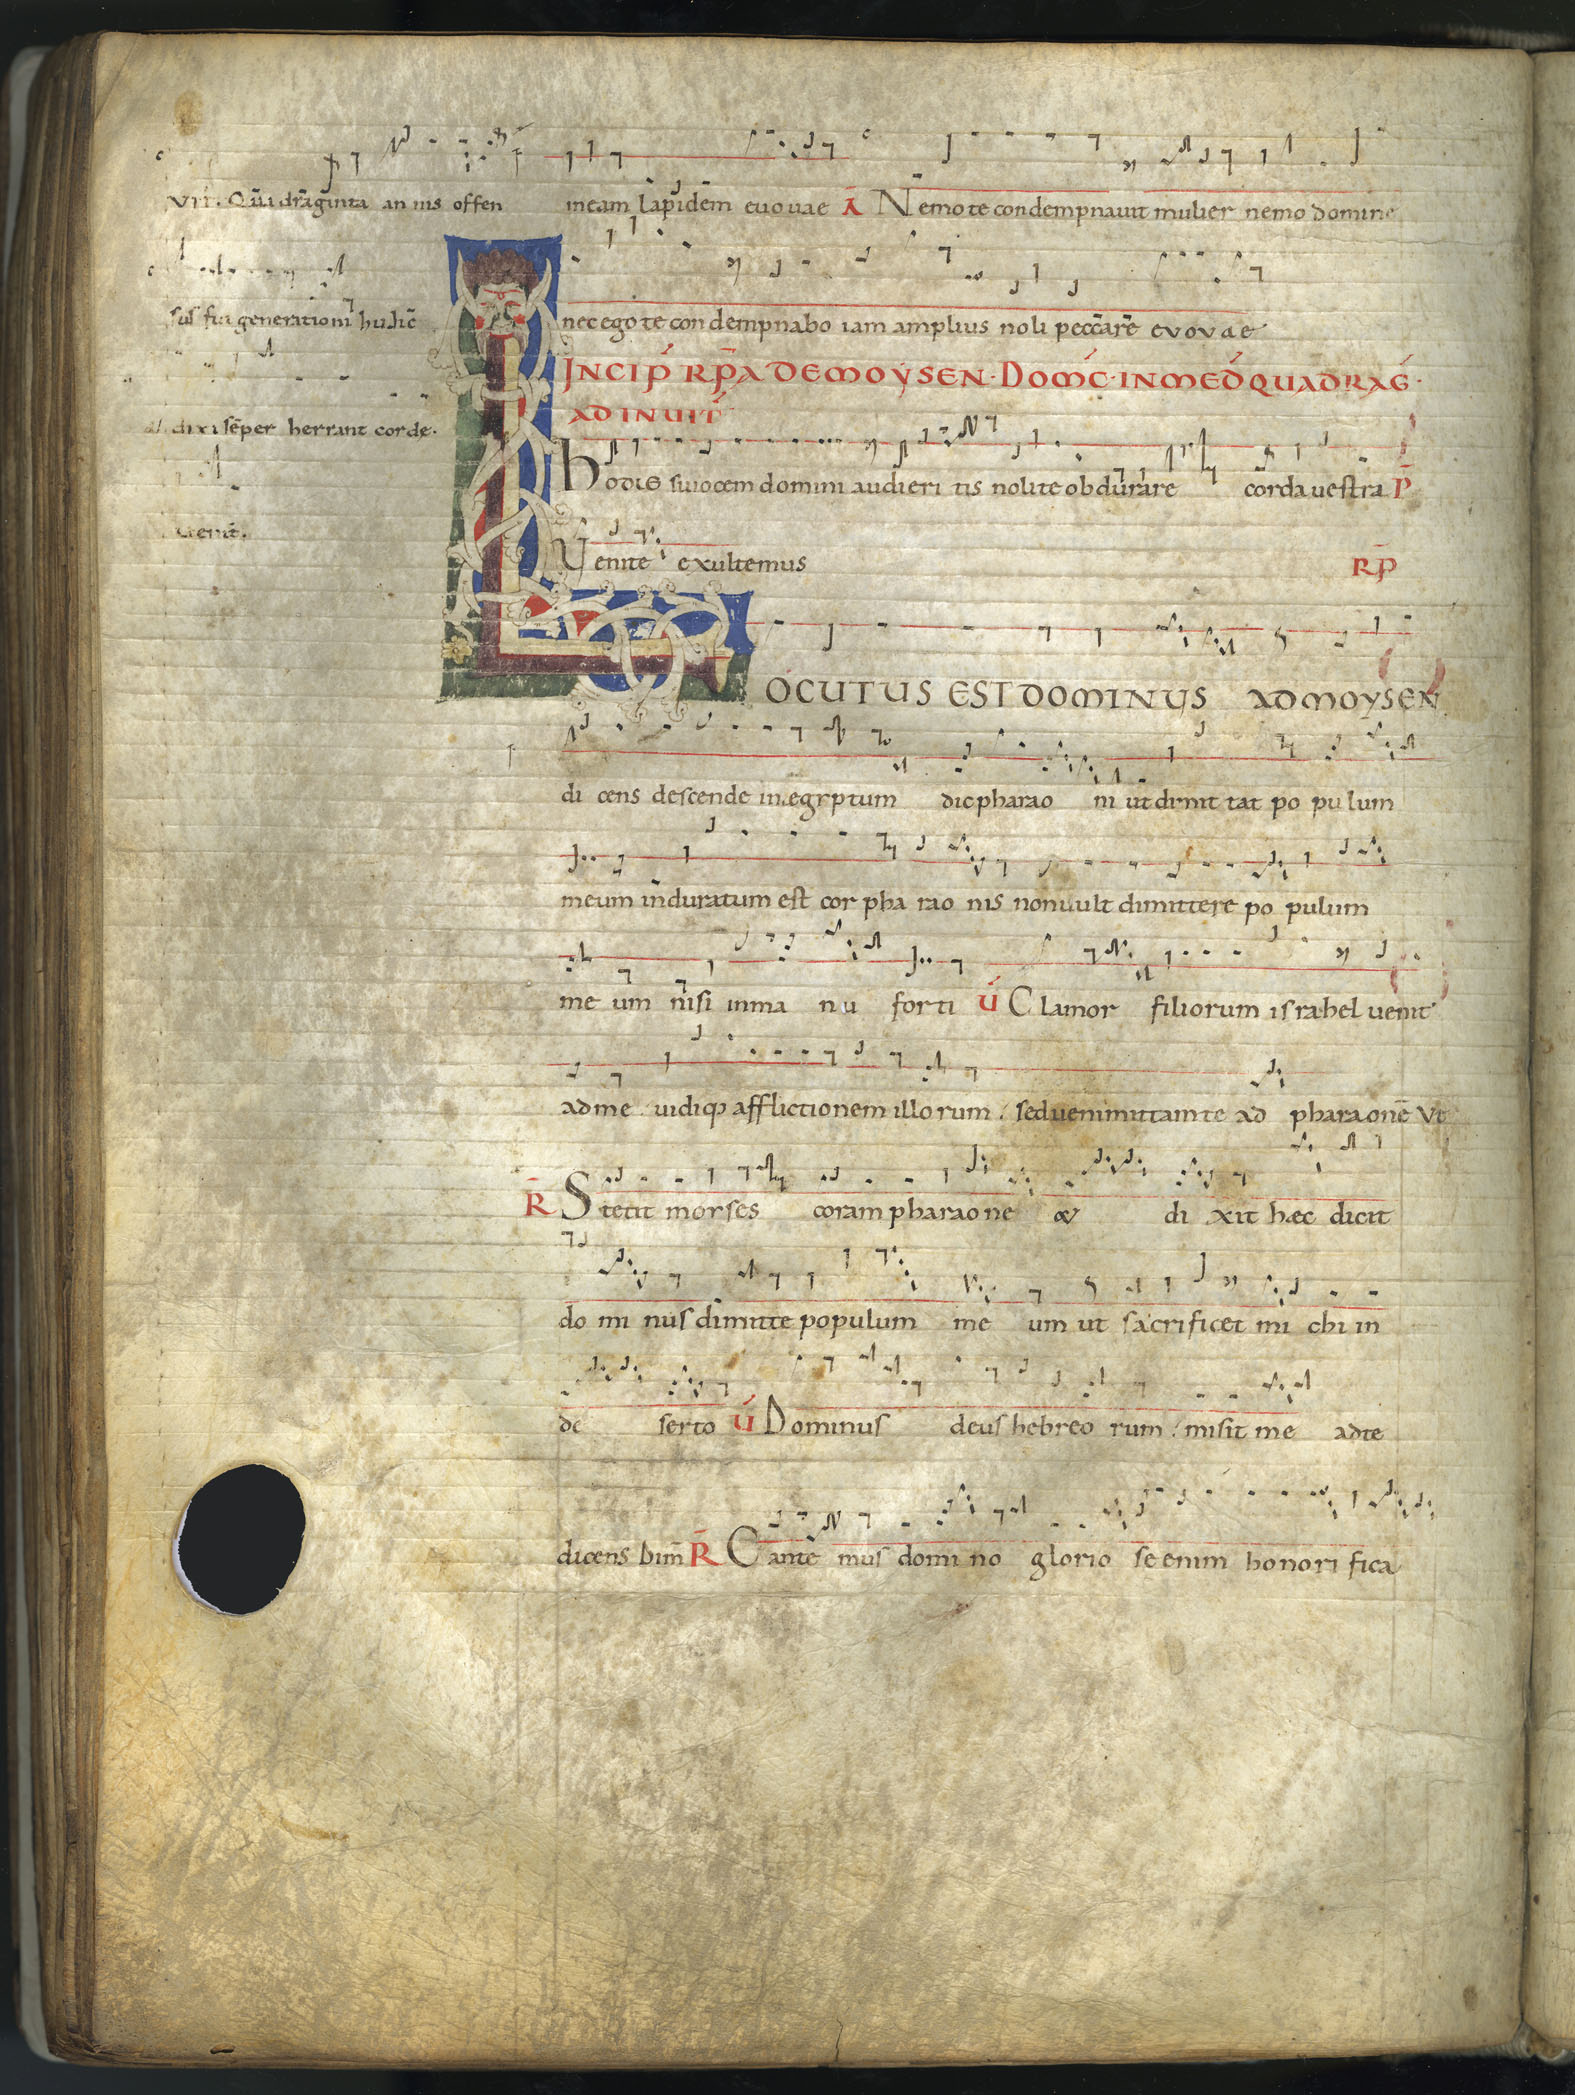 VII. Quadraginta annis offen
sus fui generationi huic
dixi sēper herrant corde.
uenit.
meam lapidem euouae A Nemo te condempnauit mulier nemo domine
nec ego te condempnabo iam amplius noli peccare evovae
INCIP RP̄A DE MOYSEN. DOMC. IN MED QUADRAG.
AD INUIT
hodie si uocem domini audieritis nolite obdurare corda uestra P̄
Venite exultemus RP̄
LOCUTUS EST DOMINUS AD MOYSEN
dicens descende in egyptum dic pharaoni ut dimittat populum
meum induratum est cor pharaonis non uult dimittere populum
meum nisi in manu forti V Clamor filiorum israhel uenit
ad me uidiq; afflictionem illorum. sed ueni mittam te ad pharaonē Ut
R̄ Stetit moyses coram pharaone & dixit hæc dicit
dominus dimitte populum meum ut sacrificet michi in
deserto V Dominus deus hebreorum misit me ad te
dicens Dim̄ R̄ Cantemus domino gloriose enim honorifica